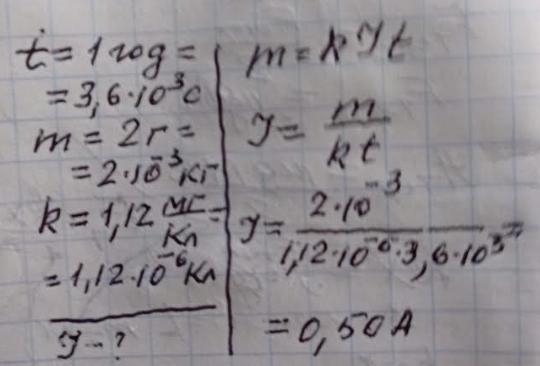 t = 1 год =
= 3,6·10³ с
m = 2 г =
= 2·10⁻³ кг
k = 1,12 мг/Кл =
= 1,12·10⁻⁶ Кл
J - ?
m = kJt
J = m/kt
J = 2·10⁻³/1,12·10⁻⁶·3,6·10³ =
= 0,50 А